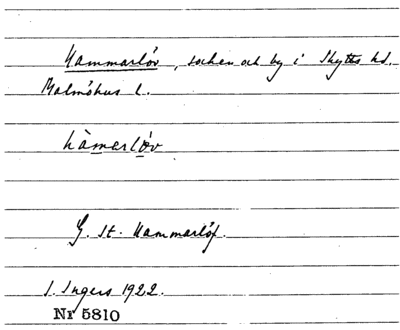 Hammarlöv, socken och by i Skytts hd.
Malmöhus l.
hàmarlöv
G. St. Hammarlöf.
I. Ingers 1922.
Nr 5810